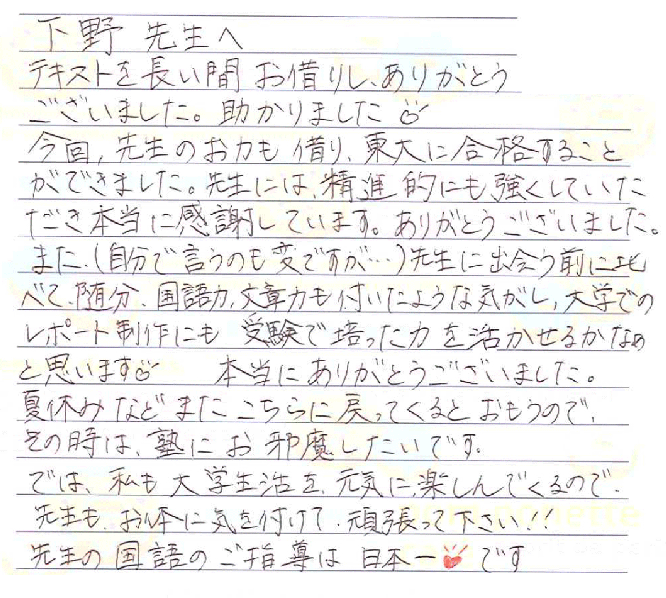 下野 先生へ
テキストを長い間 お借りし、ありがとう
ございました。助かりました
今回、先生のお力も借り、東大に合格すること
ができました。先生には、精進的にも強くしていた
だき本当に感謝しています。ありがとうございました。
また、(自分で言うのも変ですが…)先生に出会う前に比
べて、随分、国語力、文章力も付いたような気がし、大学での
レポート制作にも 受験で培った力を活かせるかなぁ
と思います 本当にありがとうございました。
夏休みなどまたこちらに戻ってくるとおもうので、
その時は、塾にお邪魔したいです。
では、私も大学生活を、元気に楽しんでくるので、
先生も、お体に気を付けて、頑張って下さい!!
先生の国語のご指導は 日本一です